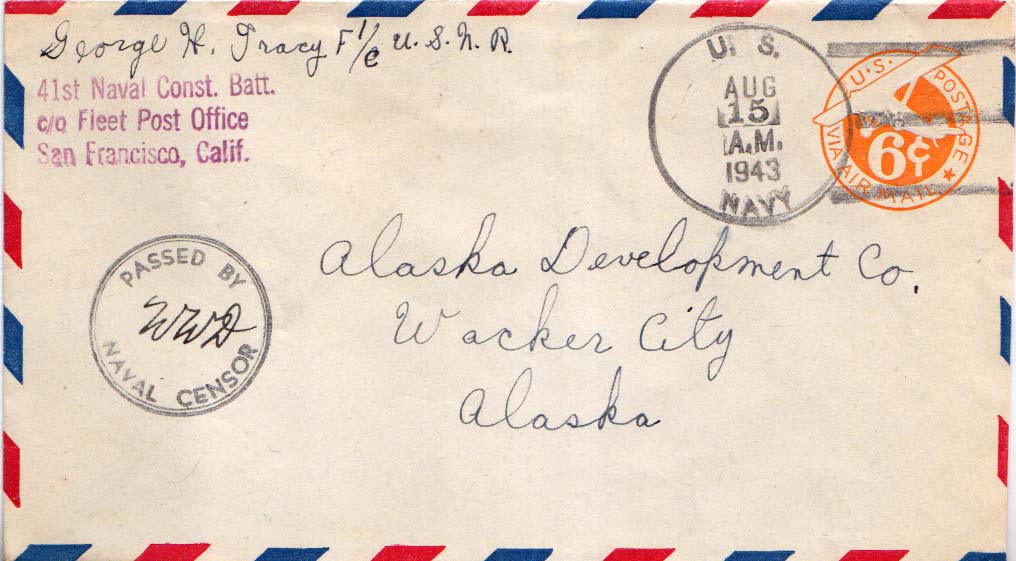 George H. Tracy F 1/c U.S.N.R.
41st Naval Const. Batt.
c/o Fleet Post Office
San Francisco, Calif.
U. S.
AUG
15
A.M.
1943
NAVY
U.S. POSTAGE
6¢
VIA AIR MAIL
PASSED BY
WWD
NAVAL CENSOR
Alaska Development Co.
Wacker City
Alaska